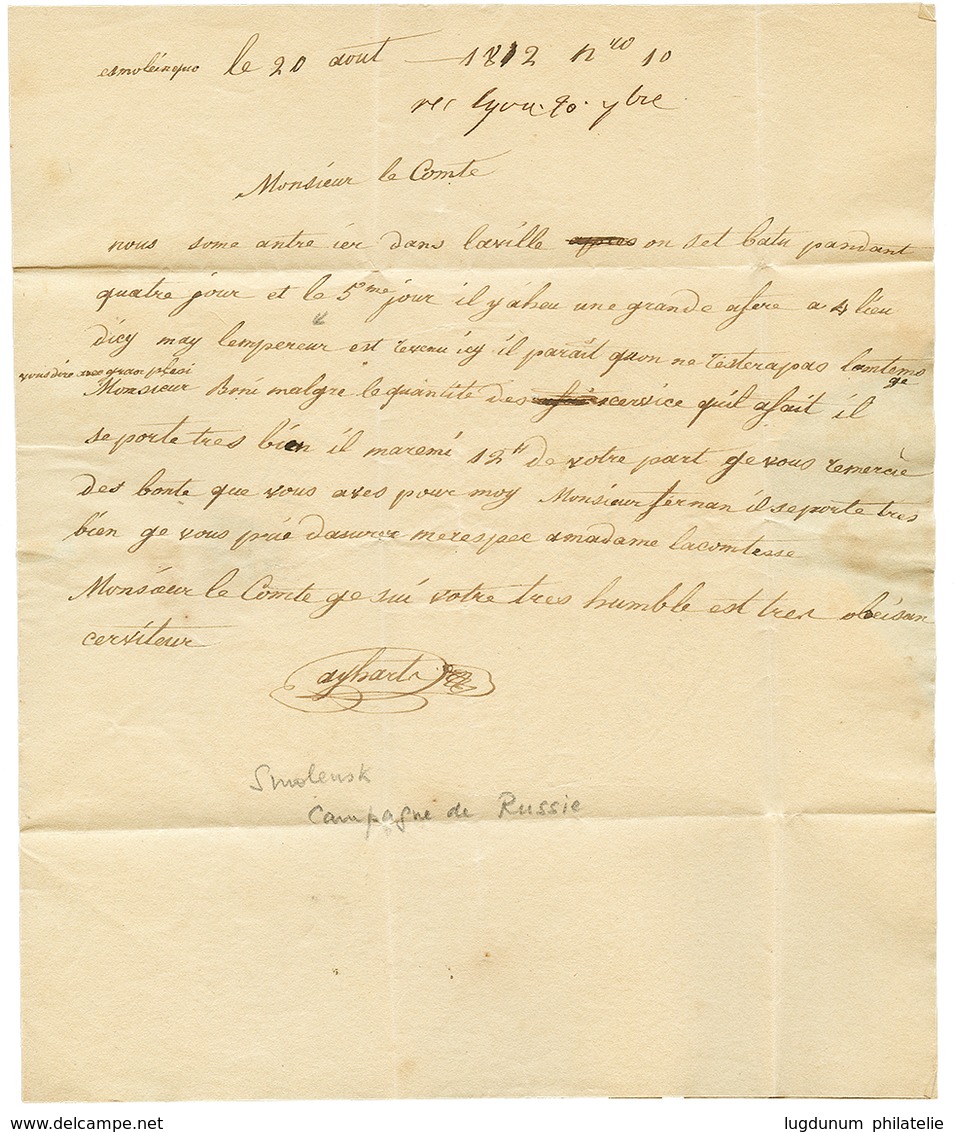 esmoleinquo le 20 aout — 1812 nro 10
rec Lyon. 20. 7bre
Monsieur le Comte
nous some antre ier dans laville apres on set batu pandant
quatre jour et le 5me jour il y aheu une grande afere a 4 lieu
dicy may lempereur est revenu icy il parait quon ne resterapas lontems
vous dire avec gran plesi ge
Monsieur Boni malgre le quantité des service quil afait il
se porte tres bien il maremi 12 de votre part ge vous remercie
des bonte que vous aves pour moy Monsieur fernan il seporte tres
bien ge vous prie dasurer merespec amadame lacomtesse
Monsieur le Comte ge sui votre tres humble est tres obeisan
cerviteur
ayhart
Smolensk
Campagne de Russie
www.delcampe.net
lugdunum philatelie